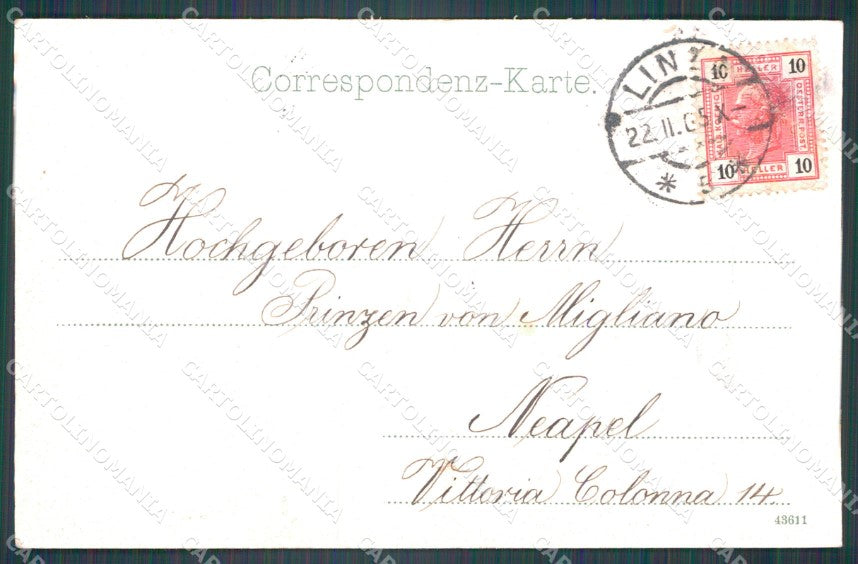 Correspondenz-Karte.
LINZ
22.II.05
5
10 HELLER 10
OESTERR. POST
10 HELLER 10
Hochgeboren Herrn
Prinzen von Migliano
Neapel
Vittoria Colonna 14
43611
CARTOLINOMANIA